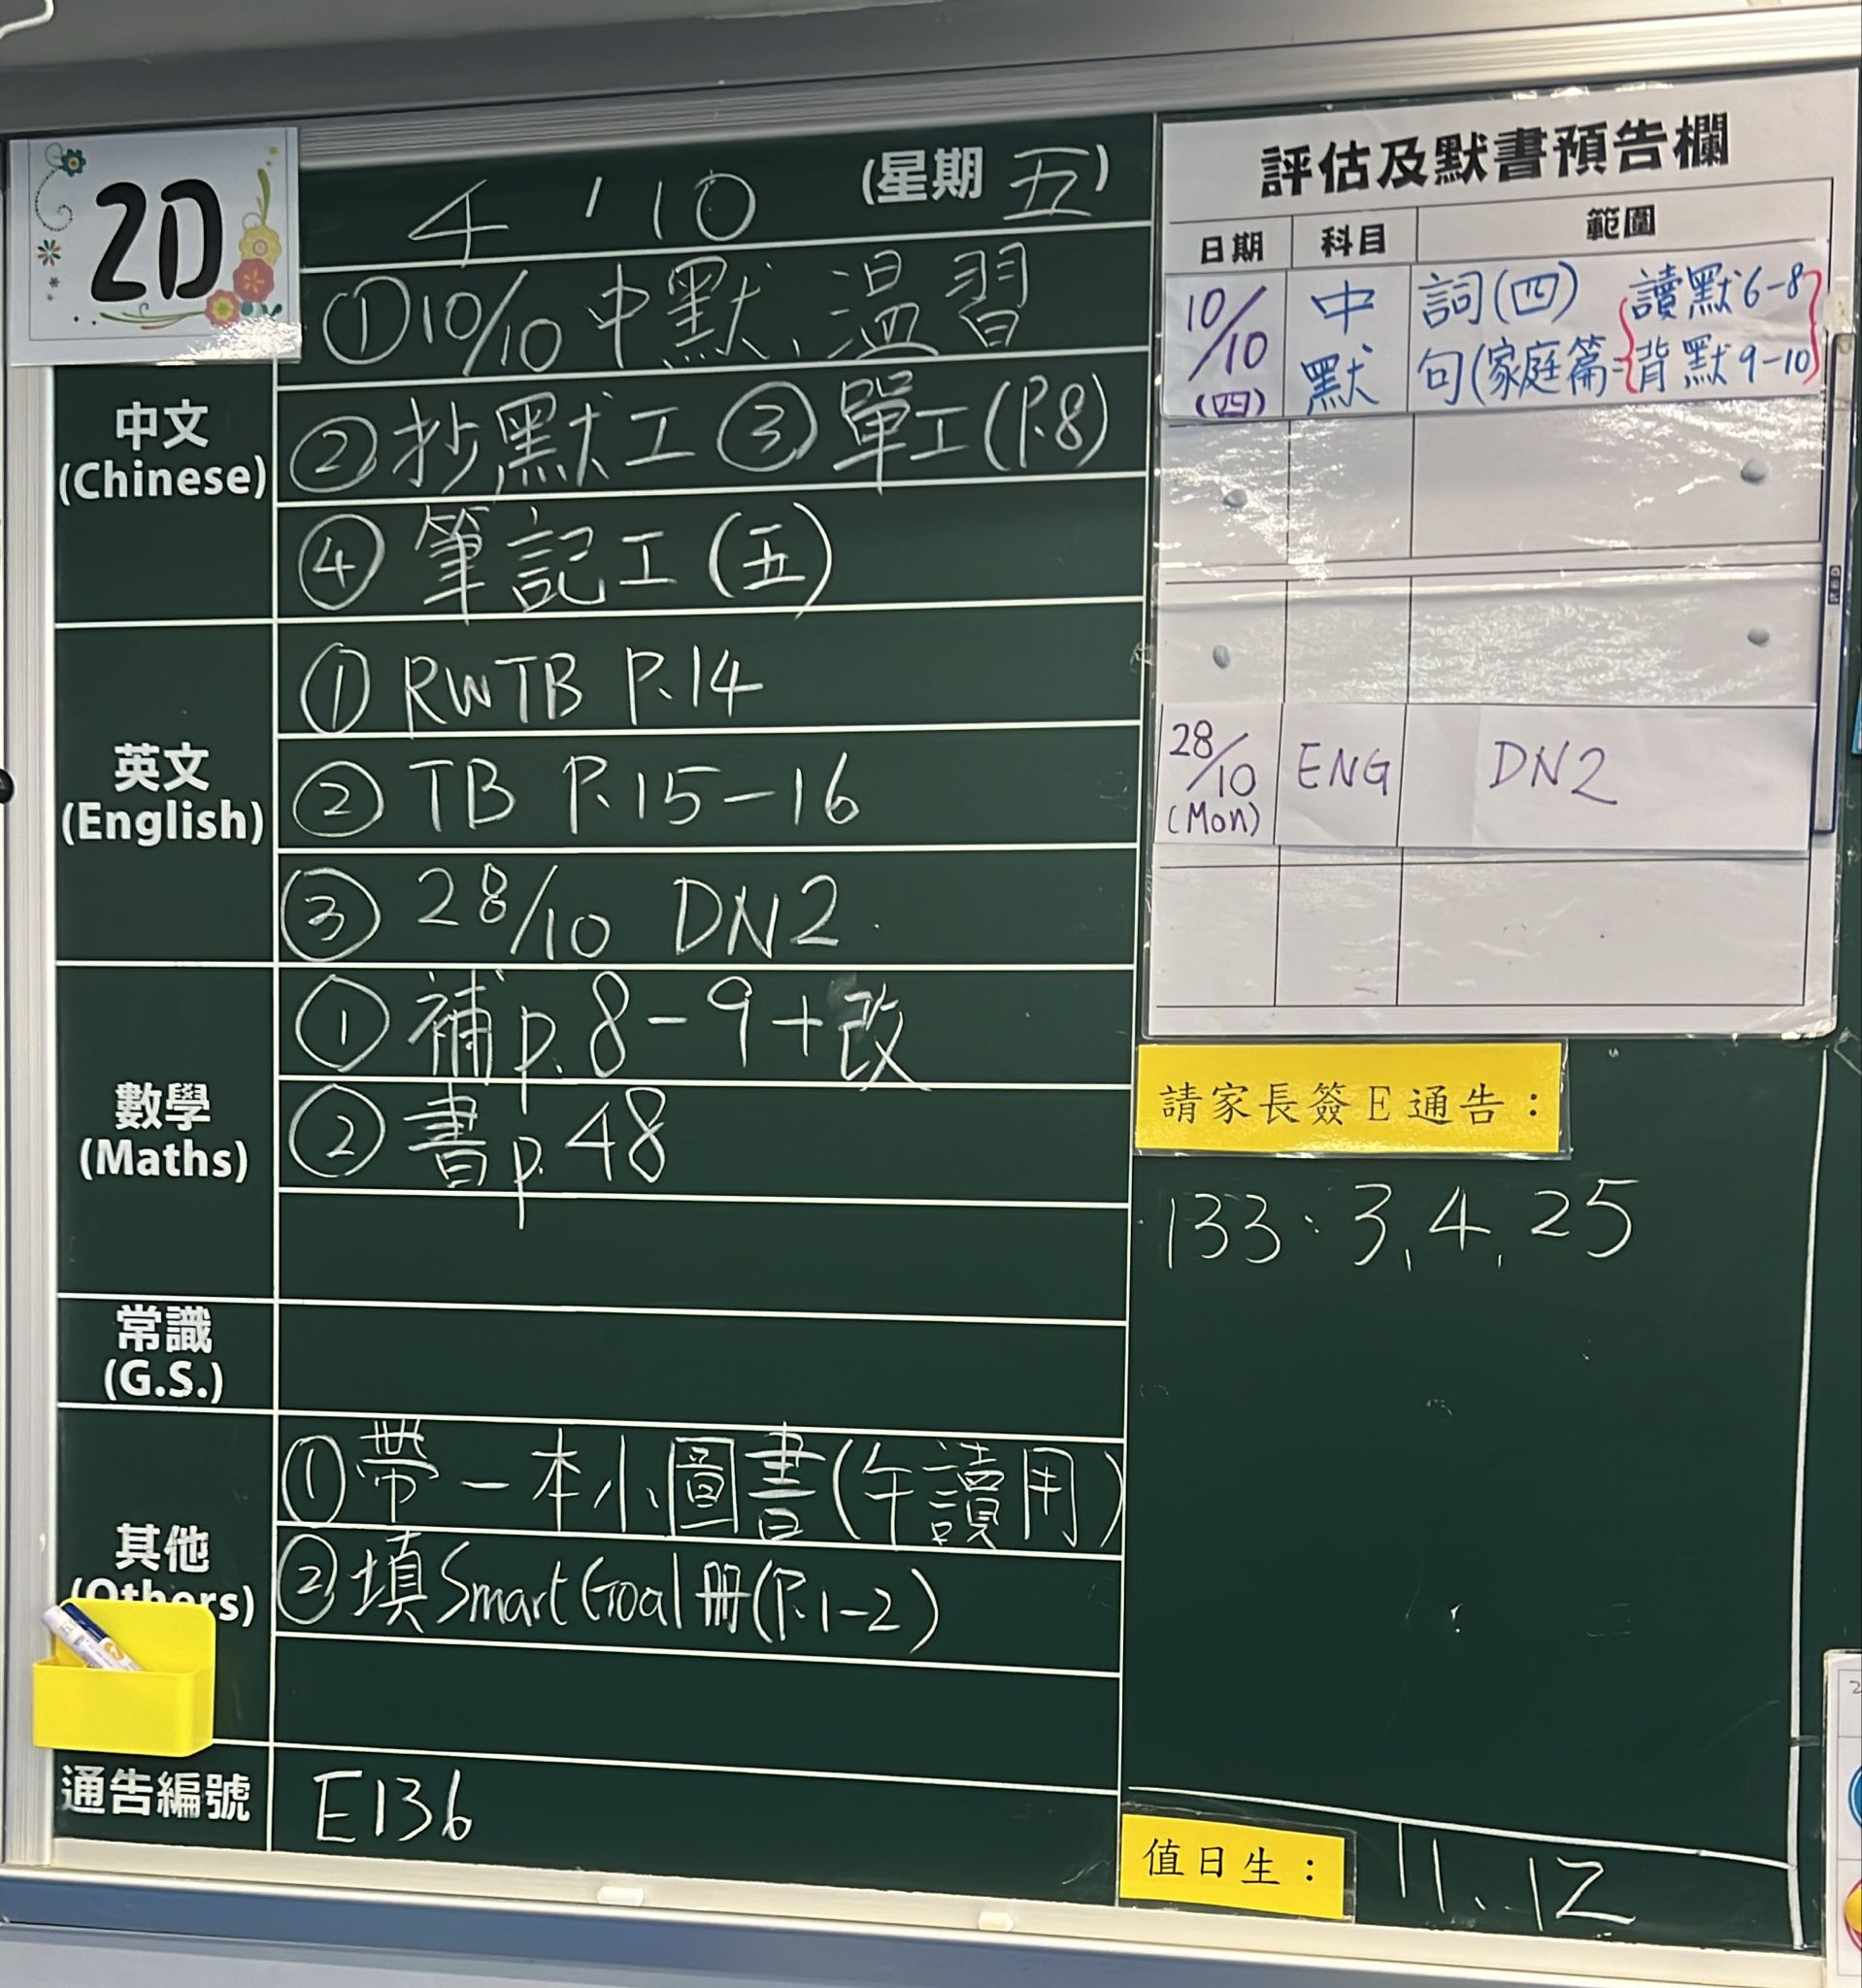 2D
4 '10 (星期五)
中文
(Chinese)
①10/10 中默、溫習
②抄默工 ③單工(P.8)
④筆記工(五)
英文
(English)
① RWTB P.14
② TB P.15-16
③ 28/10 DN2.
數學
(Maths)
① 補p.8-9+改
② 書p.48
常識
(G.S.)
其他
(Others)
①帶一本小圖書(午讀用)
②填Smart Goal冊(P.1-2)
通告編號
E136
評估及默書預告欄
日期 科目 範圍
10/10 (四) 中默 詞(四)
句(家庭篇:{讀默6-8 背默9-10}
28/10 (Mon) ENG DN2
請家長簽E通告:
133:3、4、25
值日生:
11、12